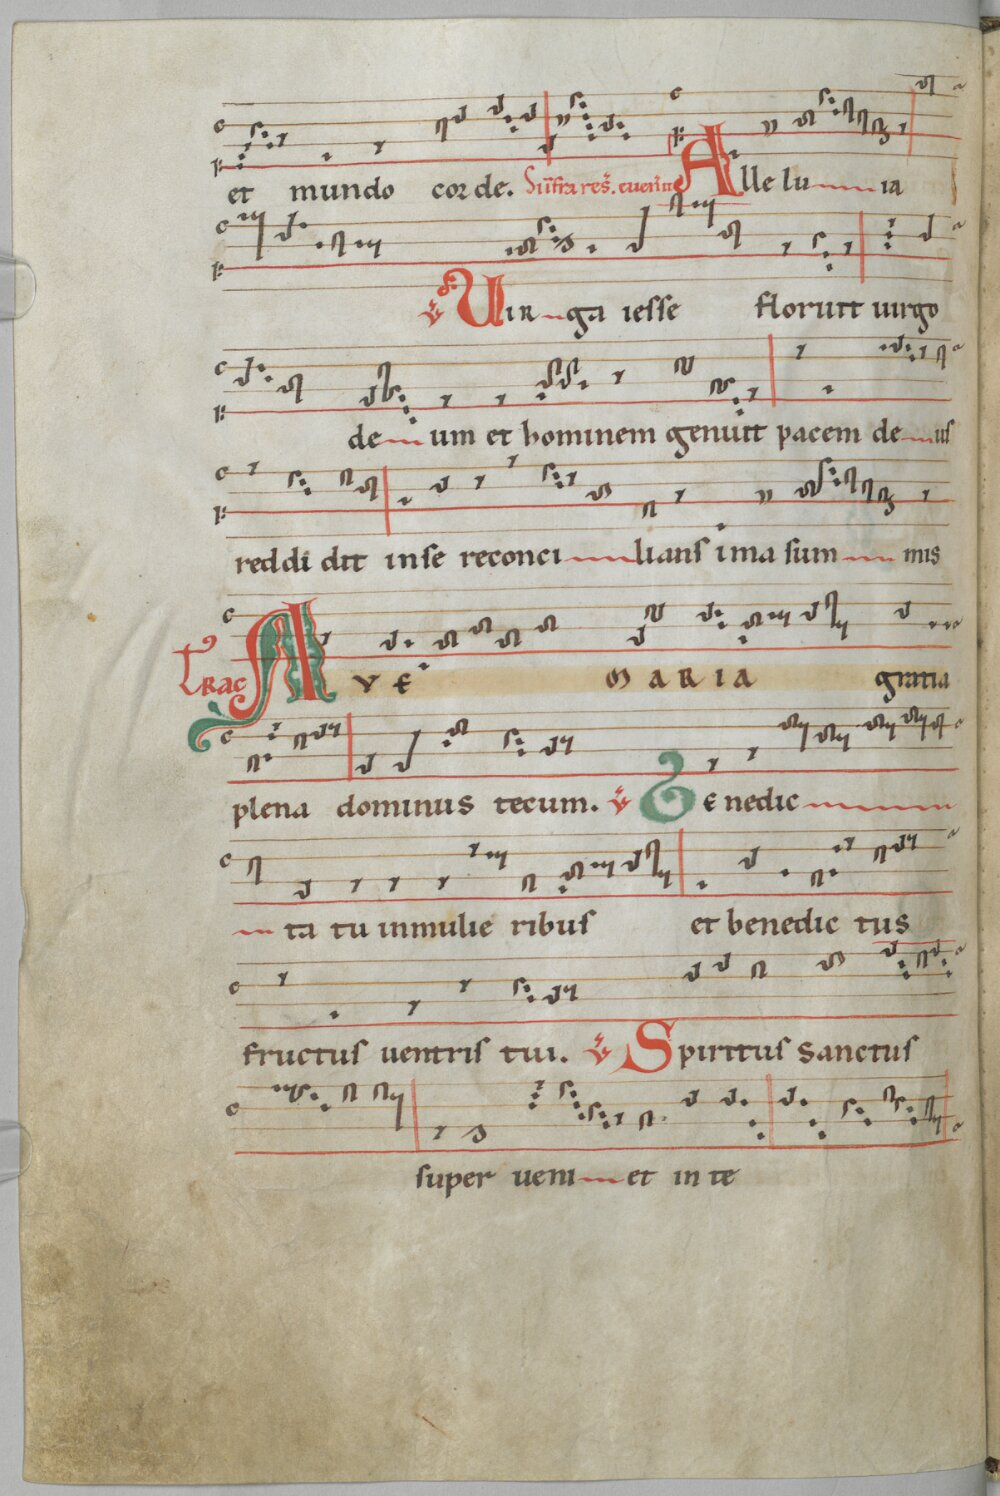 et mundo corde. Alleluia
℣ Uirga iesse floruit uirgo
deum et hominem genuit pacem deus
reddidit inse reconcilians ima summis
Trac AVE MARIA gratia
plena dominus tecum. ℣ Benedic
ta tu inmulieribus et benedictus
fructus uentris tui. ℣ Spiritus sanctus
super ueniet in te